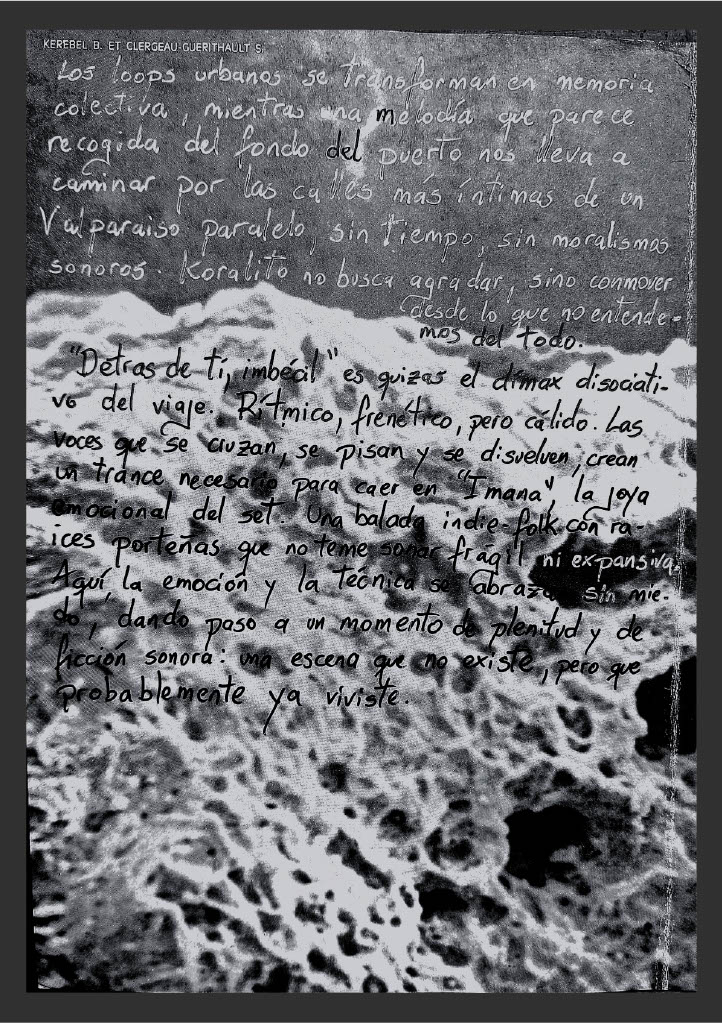 KEREBEL B. ET CLERGEAU-GUERITHAULT S.
Los loops urbanos se transforman en memoria
colectiva, mientras una melodía que parece
recogida del fondo del puerto nos lleva a
caminar por las calles más íntimas de un
Valparaiso paralelo, sin tiempo, sin moralismos
sonoros. Koralito no busca agradar, sino conmover
desde lo que no entende-
mos del todo.
"Detras de tí, imbécil" es quizas el clímax disociati-
vo del viaje. Rítmico, frenético, pero cálido. Las
voces que se cruzan, se pisan y se disuelven, crean
un trance necesario para caer en "Imana", la joya
emocional del set. Una balada indie-folk con ra-
íces porteñas que no teme sonar frágil ni expansiva.
Aquí, la emoción y la técnica se abrazan sin mie-
do, dando paso a un momento de plenitud y de
ficción sonora: una escena que no existe, pero que
probablemente ya viviste.